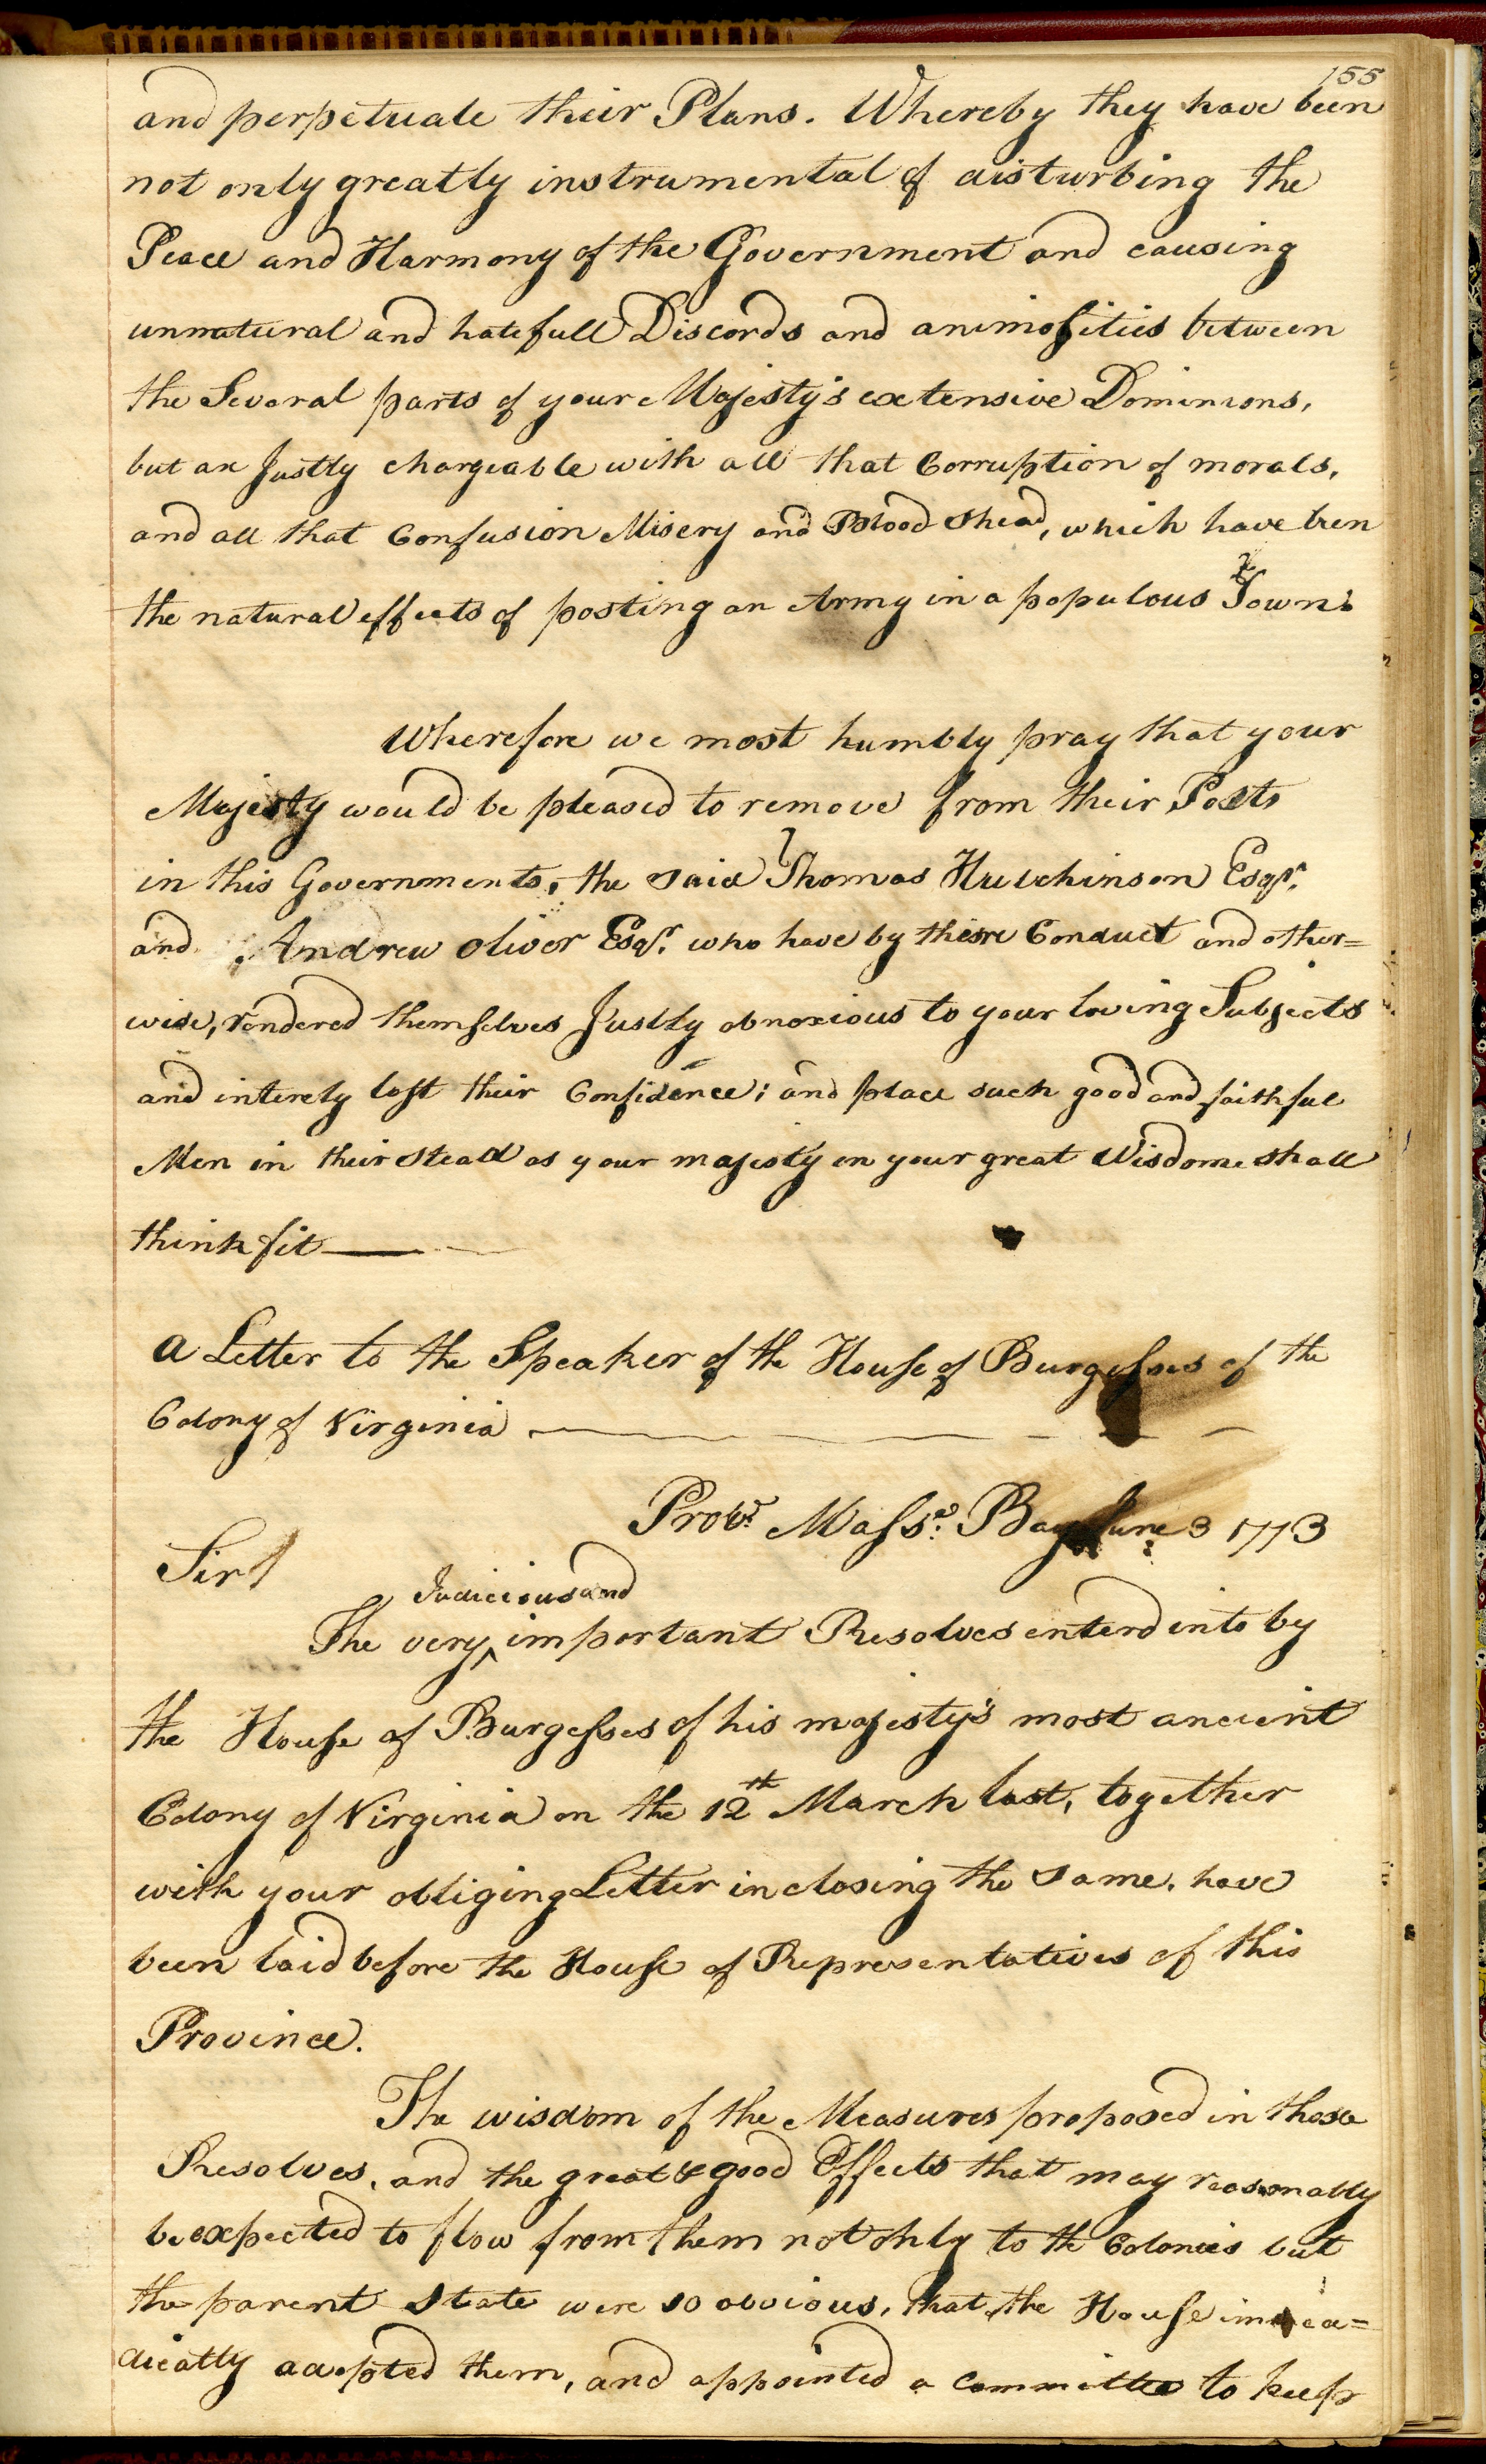 155
and perpetuate their Plans. Whereby they have been
not only greatly instrumental of disturbing the
Peace and Harmony of the Government and causing
unnatural and hatefull Discords and animosities between
the Several parts of your Majesty's extensive Dominions,
but are Justly chargeable with all that Corruption of morals,
and all that Confusion Misery and Blood Shead, which have been
the natural effects of posting an Army in a populous Town.
Wherefore we most humbly pray that your
Majesty would be pleased to remove from their Posts
in this Governments, the said Thomas Hutchinson Esqr.
and Andrew Oliver Esqr. who have by their Conduct and other=
wise, rendered themselves Justly obnoxious to your loving Subjects
and intirely lost their Confidence; and place such good and faithful
Men in their Stead as your majesty in your great Wisdome shall
think fit
a Letter to the Speaker of the House of Burgesses of the
Colony of Virginia
Provc. Massa. Bay June 3 1773
Sir
Judicious and
The very ‸ important Resolves enterd into by
the House of Burgesses of his majesty's most ancient
Colony of Virginia on the 12th March last, together
with your obliging Letter inclosing the same, have
been laid before the House of Representatives of this
Province.
The wisdom of the Measures proposed in those
Resolves, and the great & good Effects that may reasonably
be expected to flow from them not only to the Colonies but
the parent State were so obvious, that the House immea=
diatly adopted them, and appointed a Committee to keep